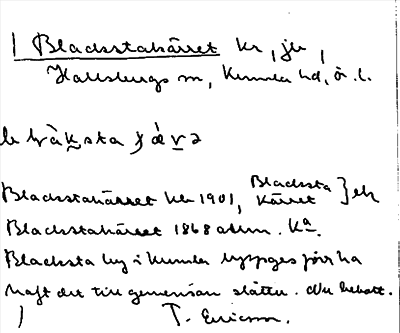 Blackstakärret kr, jfr,
Hallsbergs sn, Kumla hd, Ör. l.
Blackstakärret kr 1901, Blacksta
kärret } ek
Blackstakärret 1868 avm. Ka.
Blacksta by i Kumla uppges förr ha
haft det till gemensam slåtter. Nu
T. Ericson.